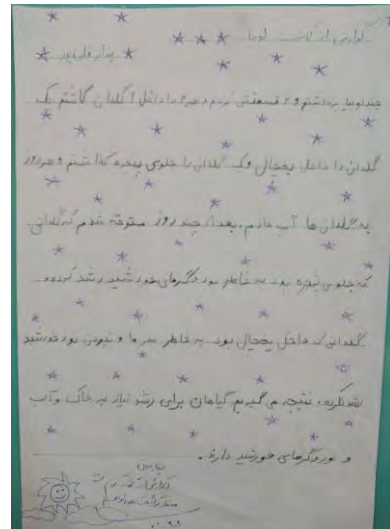 گزارش از کاشت لوبیا
پندار قلی پور
چند لوبیا برداشتم و ۲ قسمتش کردم و هر ۲ را داخل ۲ گلدان گذاشتم یک
گلدان را داخل یخچال و یک گلدان را جلوی پنجره گذاشتم و هر روز
به گلدان ها آب دادم. بعد از چند روز متوجه شدم که گلدانی
که جلوی پنجره بود به خاطر نور و گرمای خورشید رشد کرده و
گلدانی که داخل یخچال بود به خاطر سرما و نبودن نور خورشید
رشد نکرده. نتیجه می گیریم گیاهان برای رشد نیاز به خاک و آب
و نور و گرمای خورشید دارند.